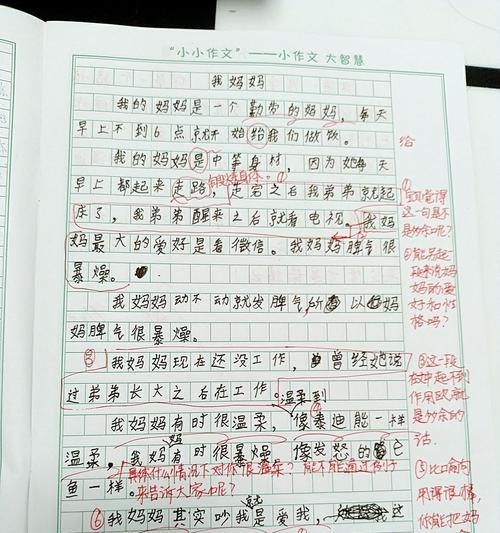 “小小作文”——小作文 大智慧
我妈妈
我的妈妈是一个勤劳的妈妈，每天
早上不到6点就开始给我们做饭。
给
我的妈妈是中等身材，因为她每天
早上都起来走路，走完之后我弟弟就起
床了，我弟弟醒来之后就看电视。我妈
妈最大的爱好是看微信。我妈妈脾气很
暴燥。
①
你觉得
这一句是不
是多余呢？
②能另起
段来说妈
妈的爱
好和性
格吗？
我妈妈动不动就发脾气，所以妈
妈脾气很暴燥。
③我妈妈现在还没工作，曾经她说
过弟弟长大之后在工作。
③这一段
在文中起不到
作用
是多余的
话。
温柔到
我妈妈有时很温柔，像泰迪能一样
温柔，我妈妈有时很暴燥，像发怒的它
鱼一样。
具体什么情况下对你很温柔？能不能通过例子
来告诉大家呢？
⑤比喻句
用得很棒，
你能把妈
⑥我妈妈其实吵我是爱我，这